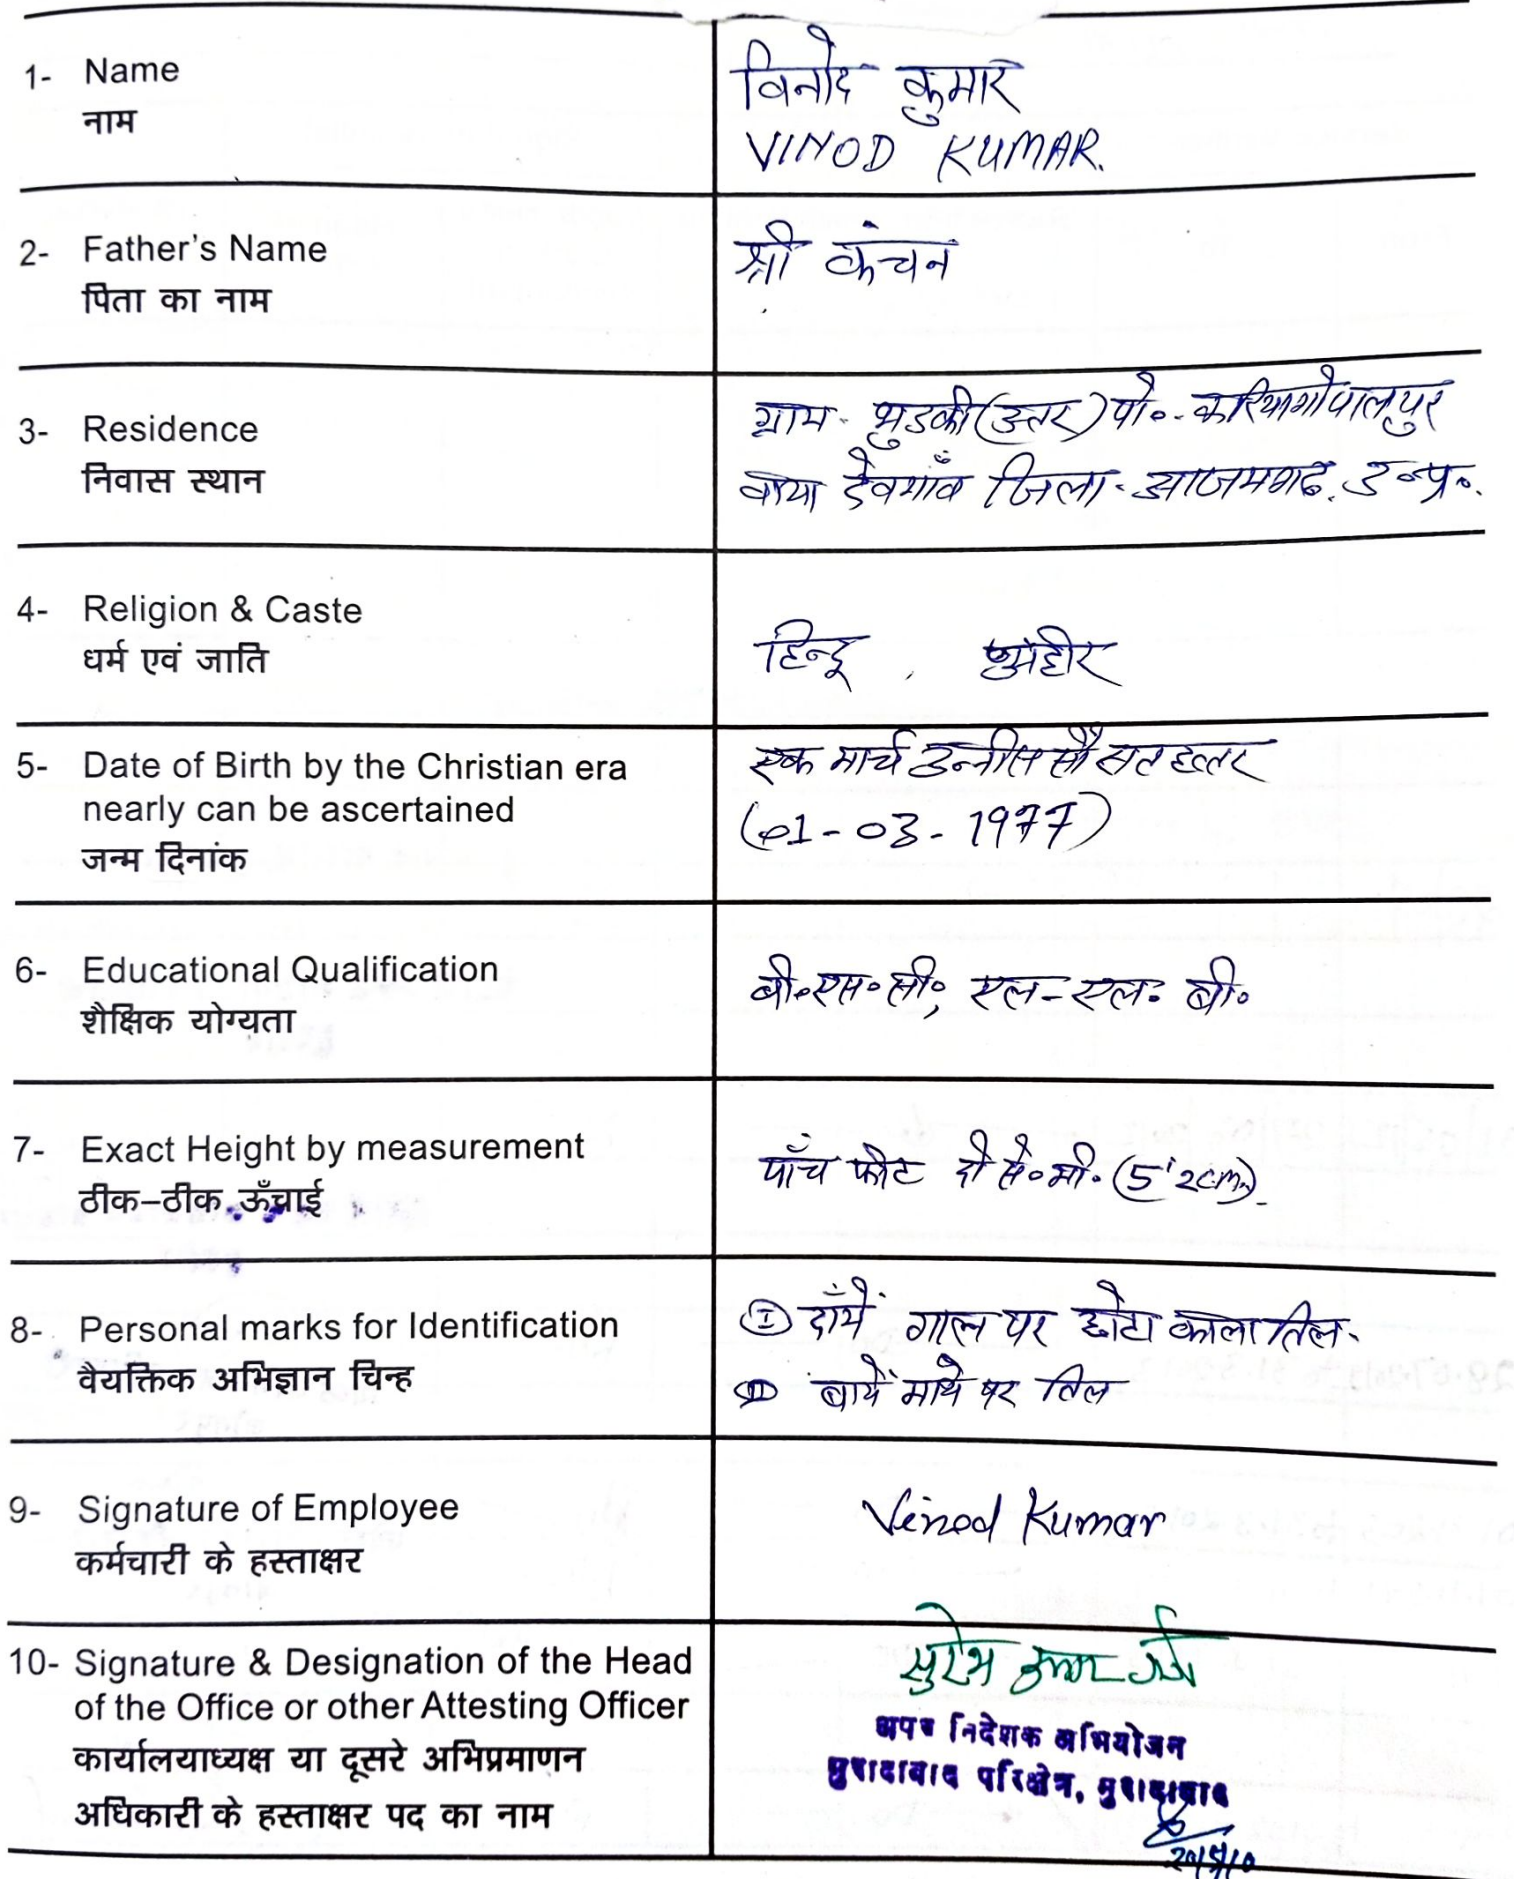 1- Name
नाम
विनोद कुमार
VINOD KUMAR.
2- Father's Name
पिता का नाम
श्री कंचन
3- Residence
निवास स्थान
ग्राम- भुडकी (उत्तर) पो०- करियागोपालपुर
वाया देवगाँव जिला- आजमगढ. उ०प्र०.
4- Religion & Caste
धर्म एवं जाति
हिन्दू,
5- Date of Birth by the Christian era
nearly can be ascertained
जन्म दिनांक
एक मार्च उन्नीस सौ सतहत्तर
(01-03-1977)
6- Educational Qualification
शैक्षिक योग्यता
बी०एस०सी०, एल-एल० बी०
7- Exact Height by measurement
ठीक–ठीक ऊँचाई
पाँच फीट दो से०मी० (5'2cm).
8- Personal marks for Identification
वैयक्तिक अभिज्ञान चिन्ह
I दाँयें गाल पर छोटा काला तिल.
II बायें माथे पर तिल
9- Signature of Employee
कर्मचारी के हस्ताक्षर
Vinod Kumar
10- Signature & Designation of the Head
of the Office or other Attesting Officer
कार्यालयाध्यक्ष या दूसरे अभिप्रमाणन
अधिकारी के हस्ताक्षर पद का नाम
अपर निदेशक अभियोजन
मुरादाबाद परिक्षेत्र, मुरादाबाद